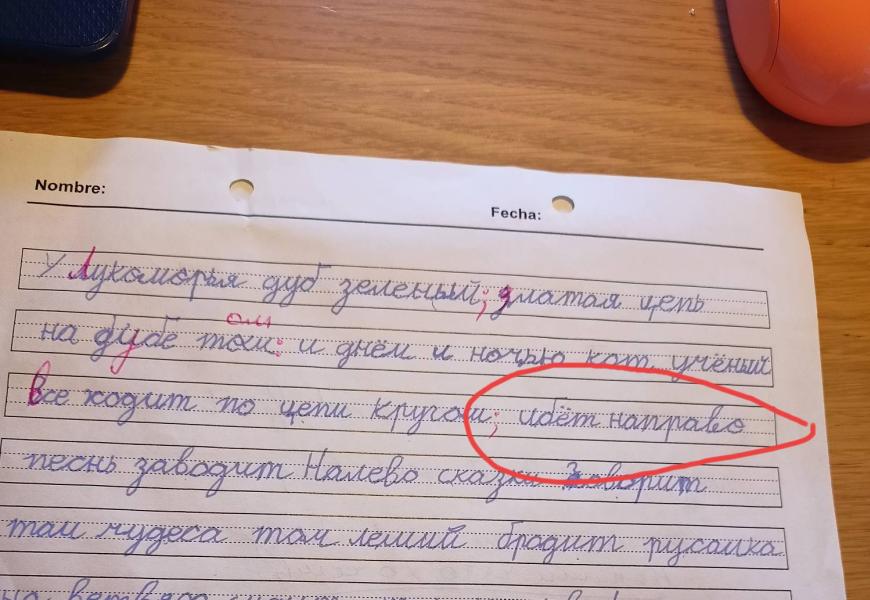 Nombre: Fecha:
У Лукоморья дуб зеленый; златая цепь
ом
на дубе том: и днём и ночью кот учёный
все ходит по цепи кругом; идёт направо
песнь заводит Налево сказки говорит
там чудеса там леший бродит русалка